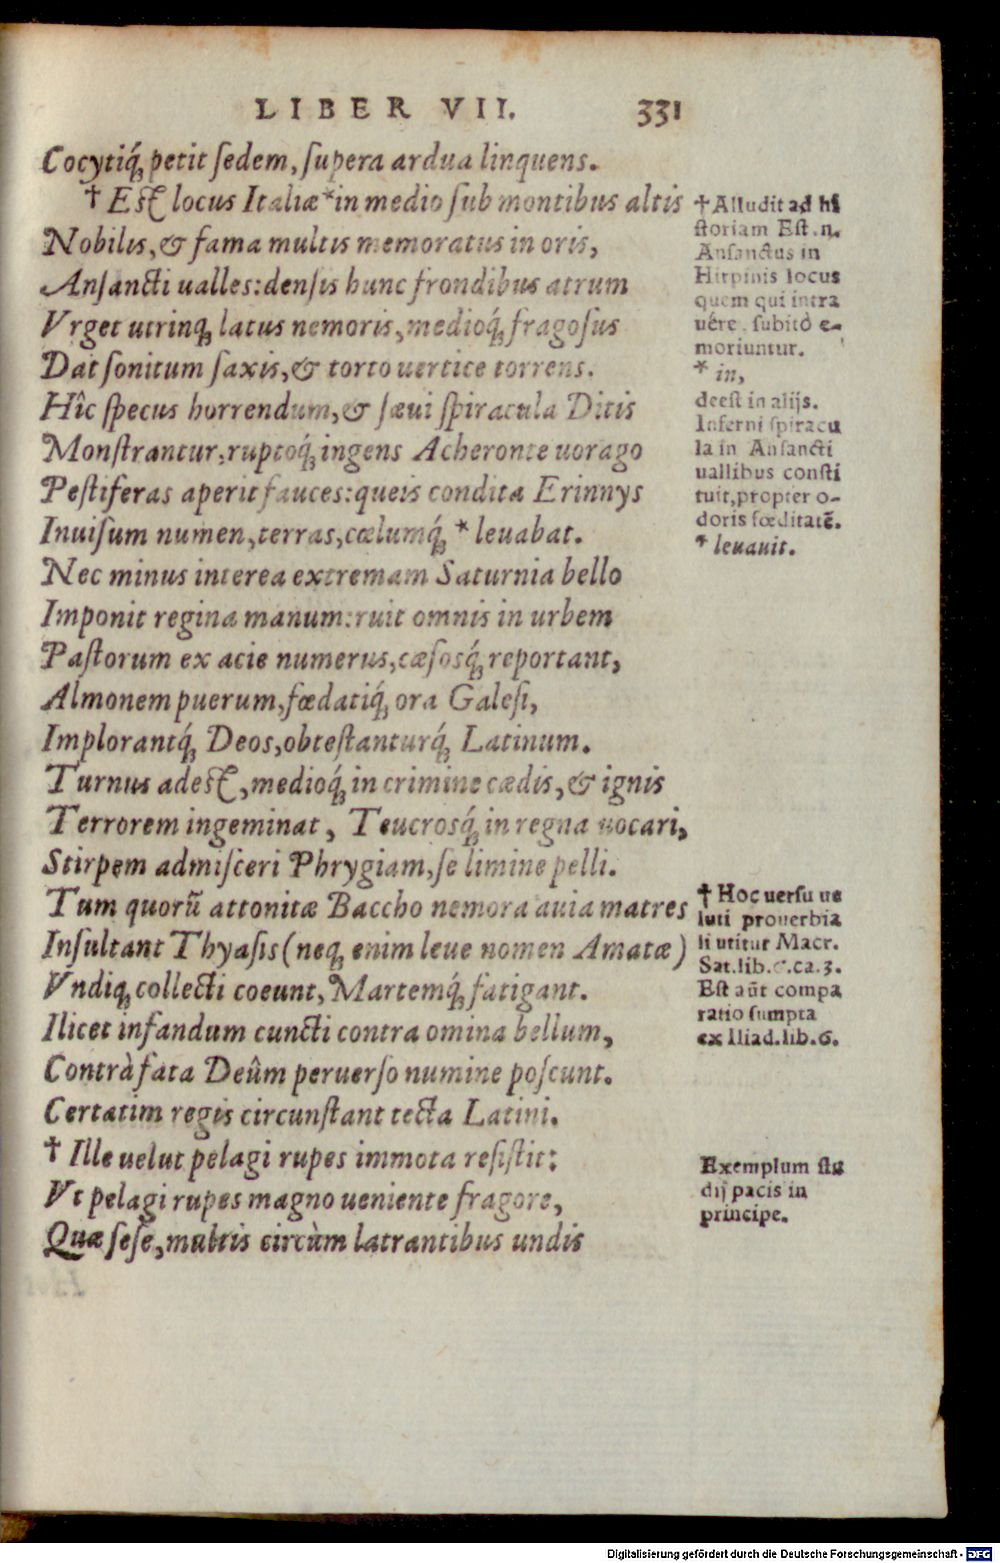 LIBER VII. 331
Cocytiq́; petit sedem, supera ardua linquens.
† Est locus Italiæ * in medio sub montibus altis
Nobilis, & fama multis memoratus in oris,
Ansancti ualles: densis hunc frondibus atrum
Vrget utrinq; latus nemoris, medioq́; fragosus
Dat sonitum saxis, & torto uertice torrens.
Hîc specus horrendum, & sæui spiracula Ditis
Monstrantur, ruptoq́; ingens Acheronte uorago
Pestiferas aperit fauces: queis condita Erinnys
Inuisum numen, terras, cœlumq́; * leuabat.
Nec minus interea extremam Saturnia bello
Imponit regina manum: ruit omnis in urbem
Pastorum ex acie numerus, cæsosq́; reportant,
Almonem puerum, fœdatiq́; ora Galesi,
Implorantq́; Deos, obtestanturq́; Latinum.
Turnus adest, medioq́; in crimine cædis, & ignis
Terrorem ingeminat, Teucrosq́; in regna uocari,
Stirpem admisceri Phrygiam, se limine pelli.
Tum quorũ attonitæ Baccho nemora auia matres
Insultant Thyasis (neq; enim leue nomen Amatæ)
Vndiq; collecti coeunt, Martemq́; fatigant.
Ilicet infandum cuncti contra omina bellum,
Contrà fata Deûm peruerso numine poscunt.
Certatim regis circunstant tecta Latini.
† Ille uelut pelagi rupes immota resistit:
Vt pelagi rupes magno ueniente fragore,
Quæ sese, multis circùm latrantibus undis
† Alludit ad hi
storiam Est .n.
Ansanctus in
Hirpinis locus
quem qui intra
uêre, subitò e-
moriuntur.
* in,
deest in alijs.
Inferni spiracu
la in Ansancti
uallibus consti
tuit, propter o-
doris fœditatẽ.
* leuauit.
† Hoc uersu ue
luti prouerbia
li utitur Macr.
Sat. lib. ca. 3.
Est aũt compa
ratio sumpta
ex Iliad. lib. 6.
Exemplum stu
dij pacis in
principe.
Digitalisierung gefördert durch die Deutsche Forschungsgemeinschaft - DFG